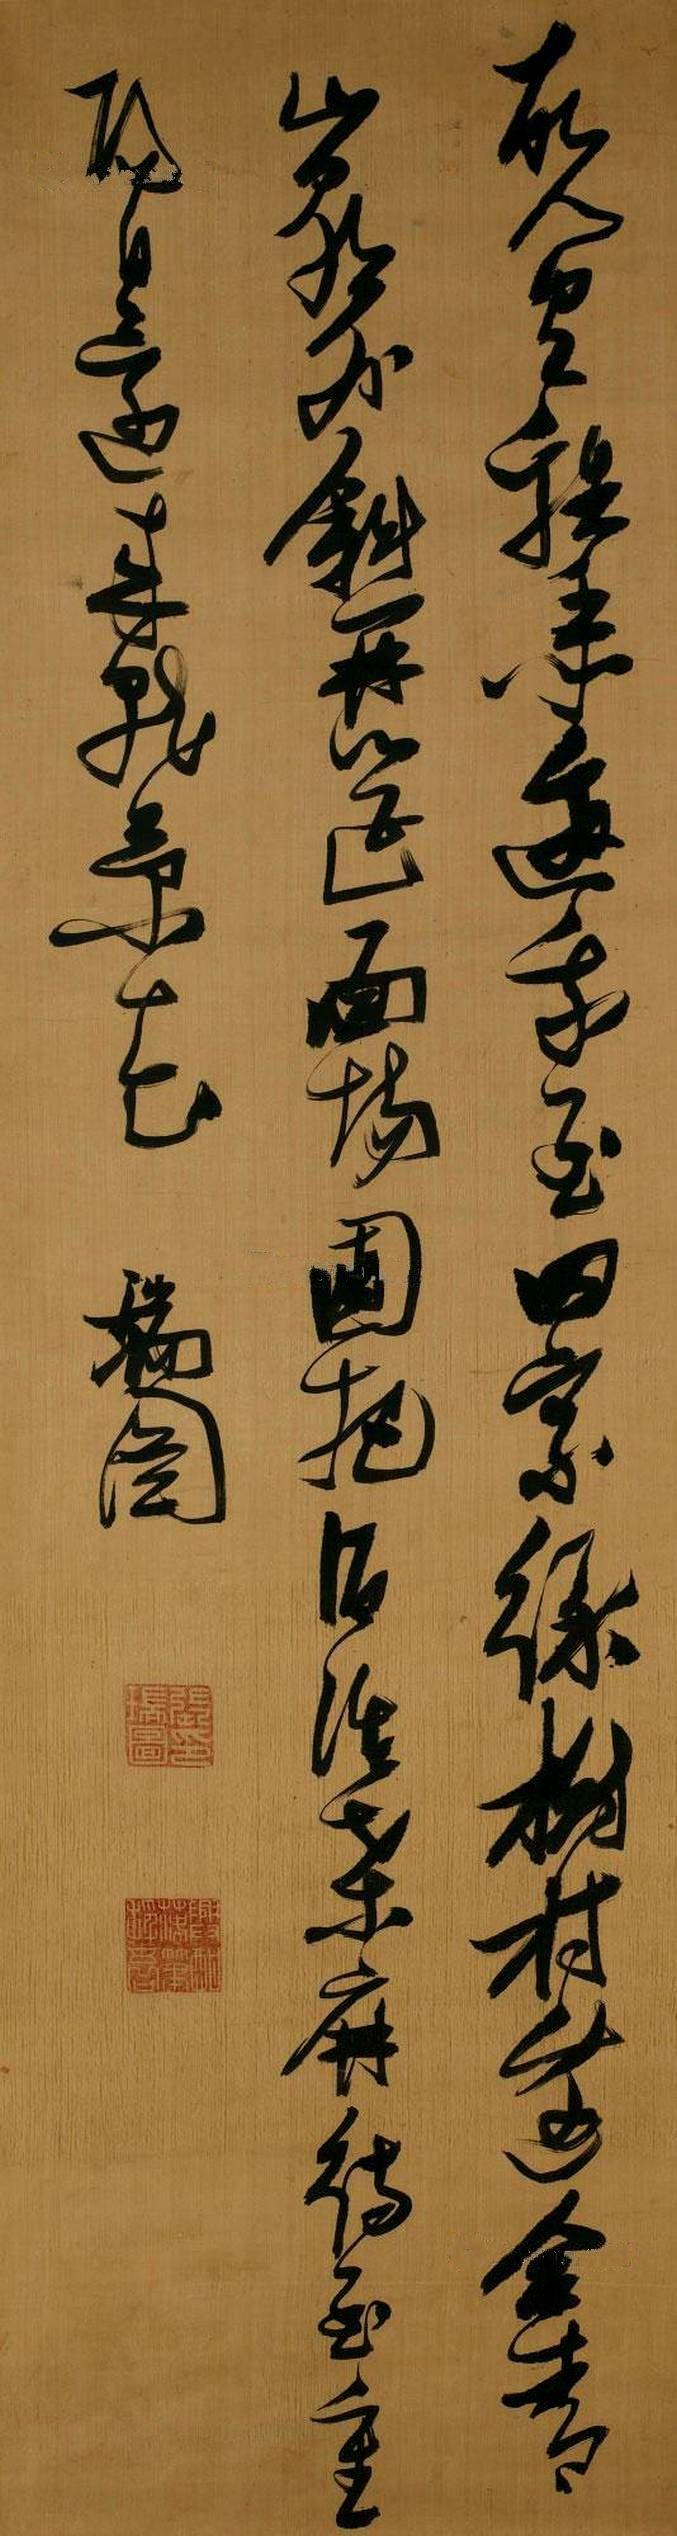 故人具雞黍邀我至田家綠樹村邊合青
山郭外斜開筵面場圃把酒話桑麻待到重
陽日還來就菊花
瑞圖
張瑞圖印